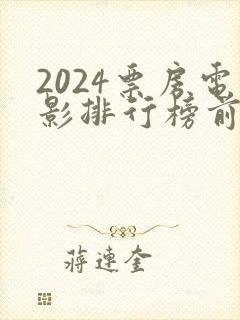 2024票房电
影排行榜前
蒋连奎